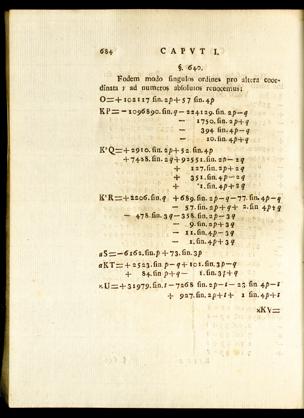 684 CAPVT I.
§. 640.
Eodem modo singulos ordines pro altera coor-
dinata y ad numeros absolutos reuocemus:
O=+102117 sin. 2p+57 sin. 4p
KP=-1096890. sin. q-224129. sin. 2p-q
- 1750. sin. 2p+q
- 394 sin. 4p-q
- 10. sin. 4p+q
K²Q=+2910. sin. 2p+52. sin. 4p
+7428. sin. 2q+92551. sin. 2p-2q
+ 127. sin. 2p+2q
+ 351. sin. 4p-2q
+ 1. sin. 4p+2q
K³R=+2206. sin. q +689. sin. 2p-q-77. sin. 4p-q
- 57. sin. 2p+q+ 2. sin 4p+q
- 478. sin. 3q-358. sin. 2p-3q
- 9. sin. 2p+3q
- 11. sin. 4p-3q
- 1. sin. 4p+3q
aS=-6162. sin. p+73. sin. 3p
aKT=+2523. sin. p-q+101. sin. 3p-q
+ 84. sin p+q- 1. sin. 3p+q
κU=+31979. sin. t-7268 sin. 2p-t-23 sin. 4p-t
+ 927. sin. 2p+t+ 1 sin. 4p+t
κKV=